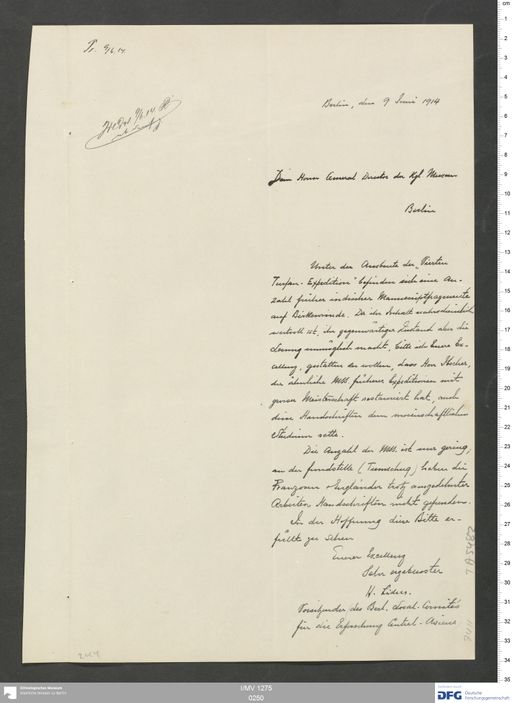 Pr. 9/6.14.
Berlin, den 9 Juni 1914
Dem Herrn General Director der Kgl. Museen
Berlin
Unter der Ausbeute der „Vierten
Turfan-Expedition" befinden sich eine An-
zahl früher indischer Manuscriptfragmente
auf Birkenrinde. Da ihr Inhalt wahrscheinlich
wertvoll ist, ihr gegenwärtiger Zustand aber die
Lesung unmöglich macht, bitte ich Euere Ex-
cellenz, gestatten zu wollen, dass Herr
der ähnliche MSS. früherer Expeditionen mit
grosser Meisterschaft restauriert hat, auch
diese Handschriften dem wissenschaftlichen
Studium rette.
Die Anzahl der MSS. ist nur gering,
an der Fundstelle (Tumschuq) haben die
Franzosen & Engländer trotz ausgedehnter
Arbeiten Handschriften nicht gefunden.
In der Hoffnung diese Bitte er-
füllt zu sehen
Euerer Excellenz
Sehr ergebenster
H. Lüders.
Vorsitzender des Berl. Local-Comités
für die Erforschung Central-Asiens
I/MV 1275
0250
Ethnologisches Museum
Staatliche Museen zu Berlin
DFG Deutsche
Forschungsgemeinschaft